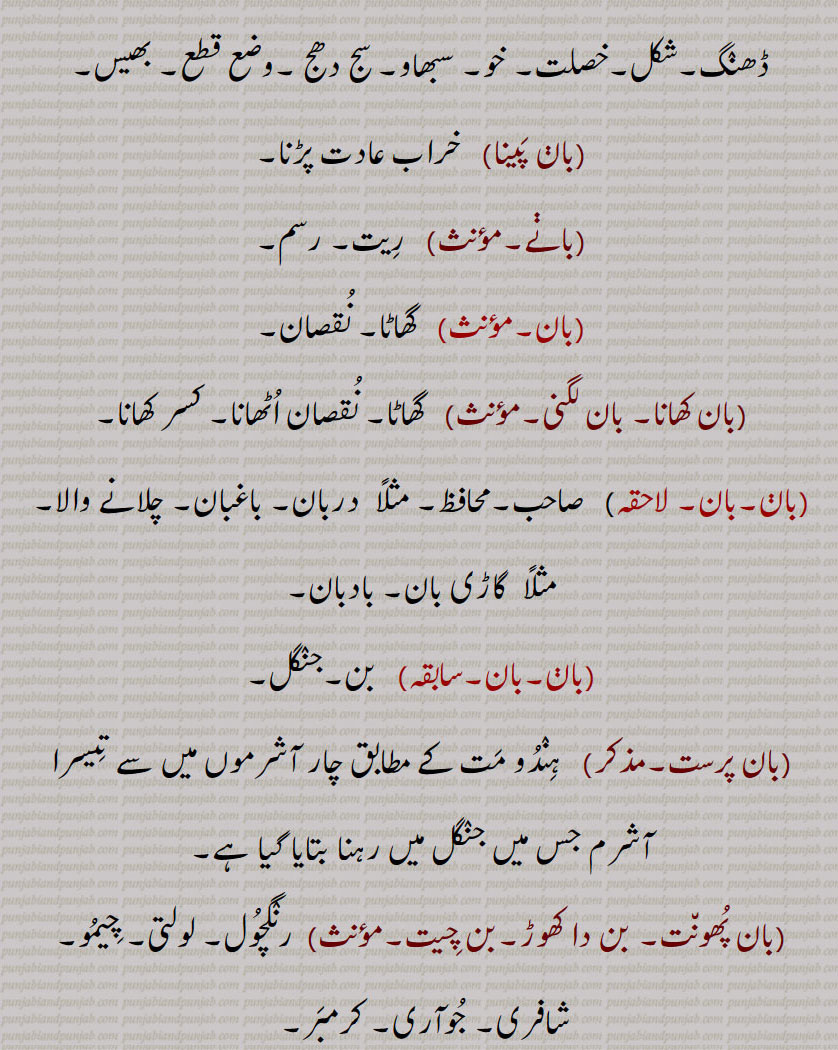 ڈھنگ۔شکل۔خصلت۔ خو۔ سبھاو۔ سج دھج ۔وضع قطع۔ بھیس۔
(بان پَینا) خراب عادت پڑنا۔
(بانے۔مؤنث) رِیت۔ رسم۔
(بان۔مؤنث) گھاٹا۔ نُقصان۔
(بان کھانا۔ بان لگنی۔مؤنث) گھاٹا۔ نُقصان اُٹھانا۔ کسر کھانا۔
(بان۔بان۔ لاحقہ) صاحب۔محافظ۔ مثلاً دربان۔ باغبان۔ چلانے والا۔
مثلاً گاڑی بان۔ بادبان۔
(بان۔بان۔سابقہ) بن۔جنگل۔
(بان پرست۔مذکر) ہِنْدُو مَت کے مطابق چار آشرموں میں سے تِیسرا
آشرم جس میں جنگل میں رہنا بتایا گیا ہے۔
(بان پُھونّت۔ بن دا کھوڑ۔بن چِیت۔مؤنث) رنگچُول۔ لولتی۔ چِیمُو۔
شافری۔ جُوآری۔ کرمبَر۔